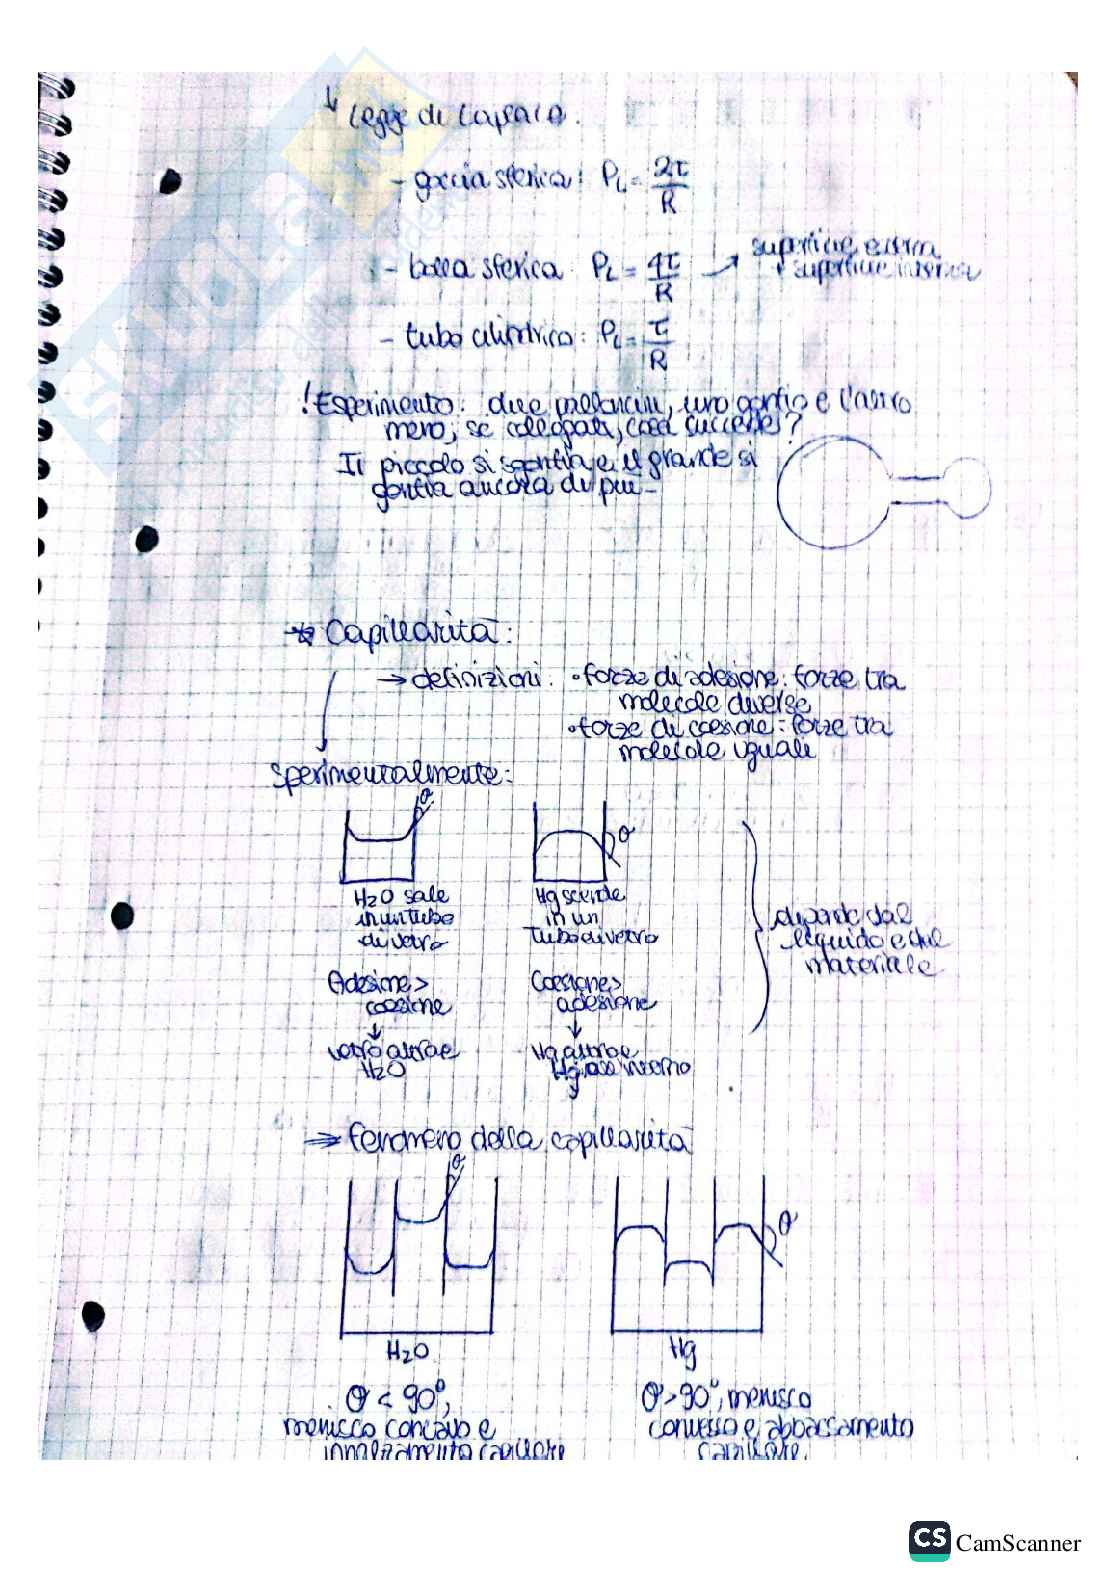 ↓ Legge di Laplace.
- goccia sferica: PL = 2τ/R
- bolla sferica: PL = 4τ/R → superficie esterna
+ superficie interna
- tubo cilindrico: PL = τ/R
! Esperimento: due palloncini, uno gonfio e l'altro
meno, se collegati, cosa succede?
Il piccolo si sgonfia e il grande si
gonfia ancora di più.
* Capillarità:
→ definizioni: • forze di adesione: forze tra
molecole diverse
• forze di coesione: forze tra
molecole uguali
Sperimentalmente:
θ
θ
H2O sale
in un tubo
di vetro
Hg scende
in un
tubo di vetro
dipende dal
liquido e dal
materiale
Adesione >
coesione
↓
vetro attrae
H2O
Coesione >
adesione
↓
Hg attrae
Hg all'interno
⇒ fenomeno della capillarità
θ
θ
H2O
Hg
θ < 90°,
menisco concavo e
innalzamento capillare
θ > 90°, menisco
convesso e abbassamento
capillare.
CS CamScanner